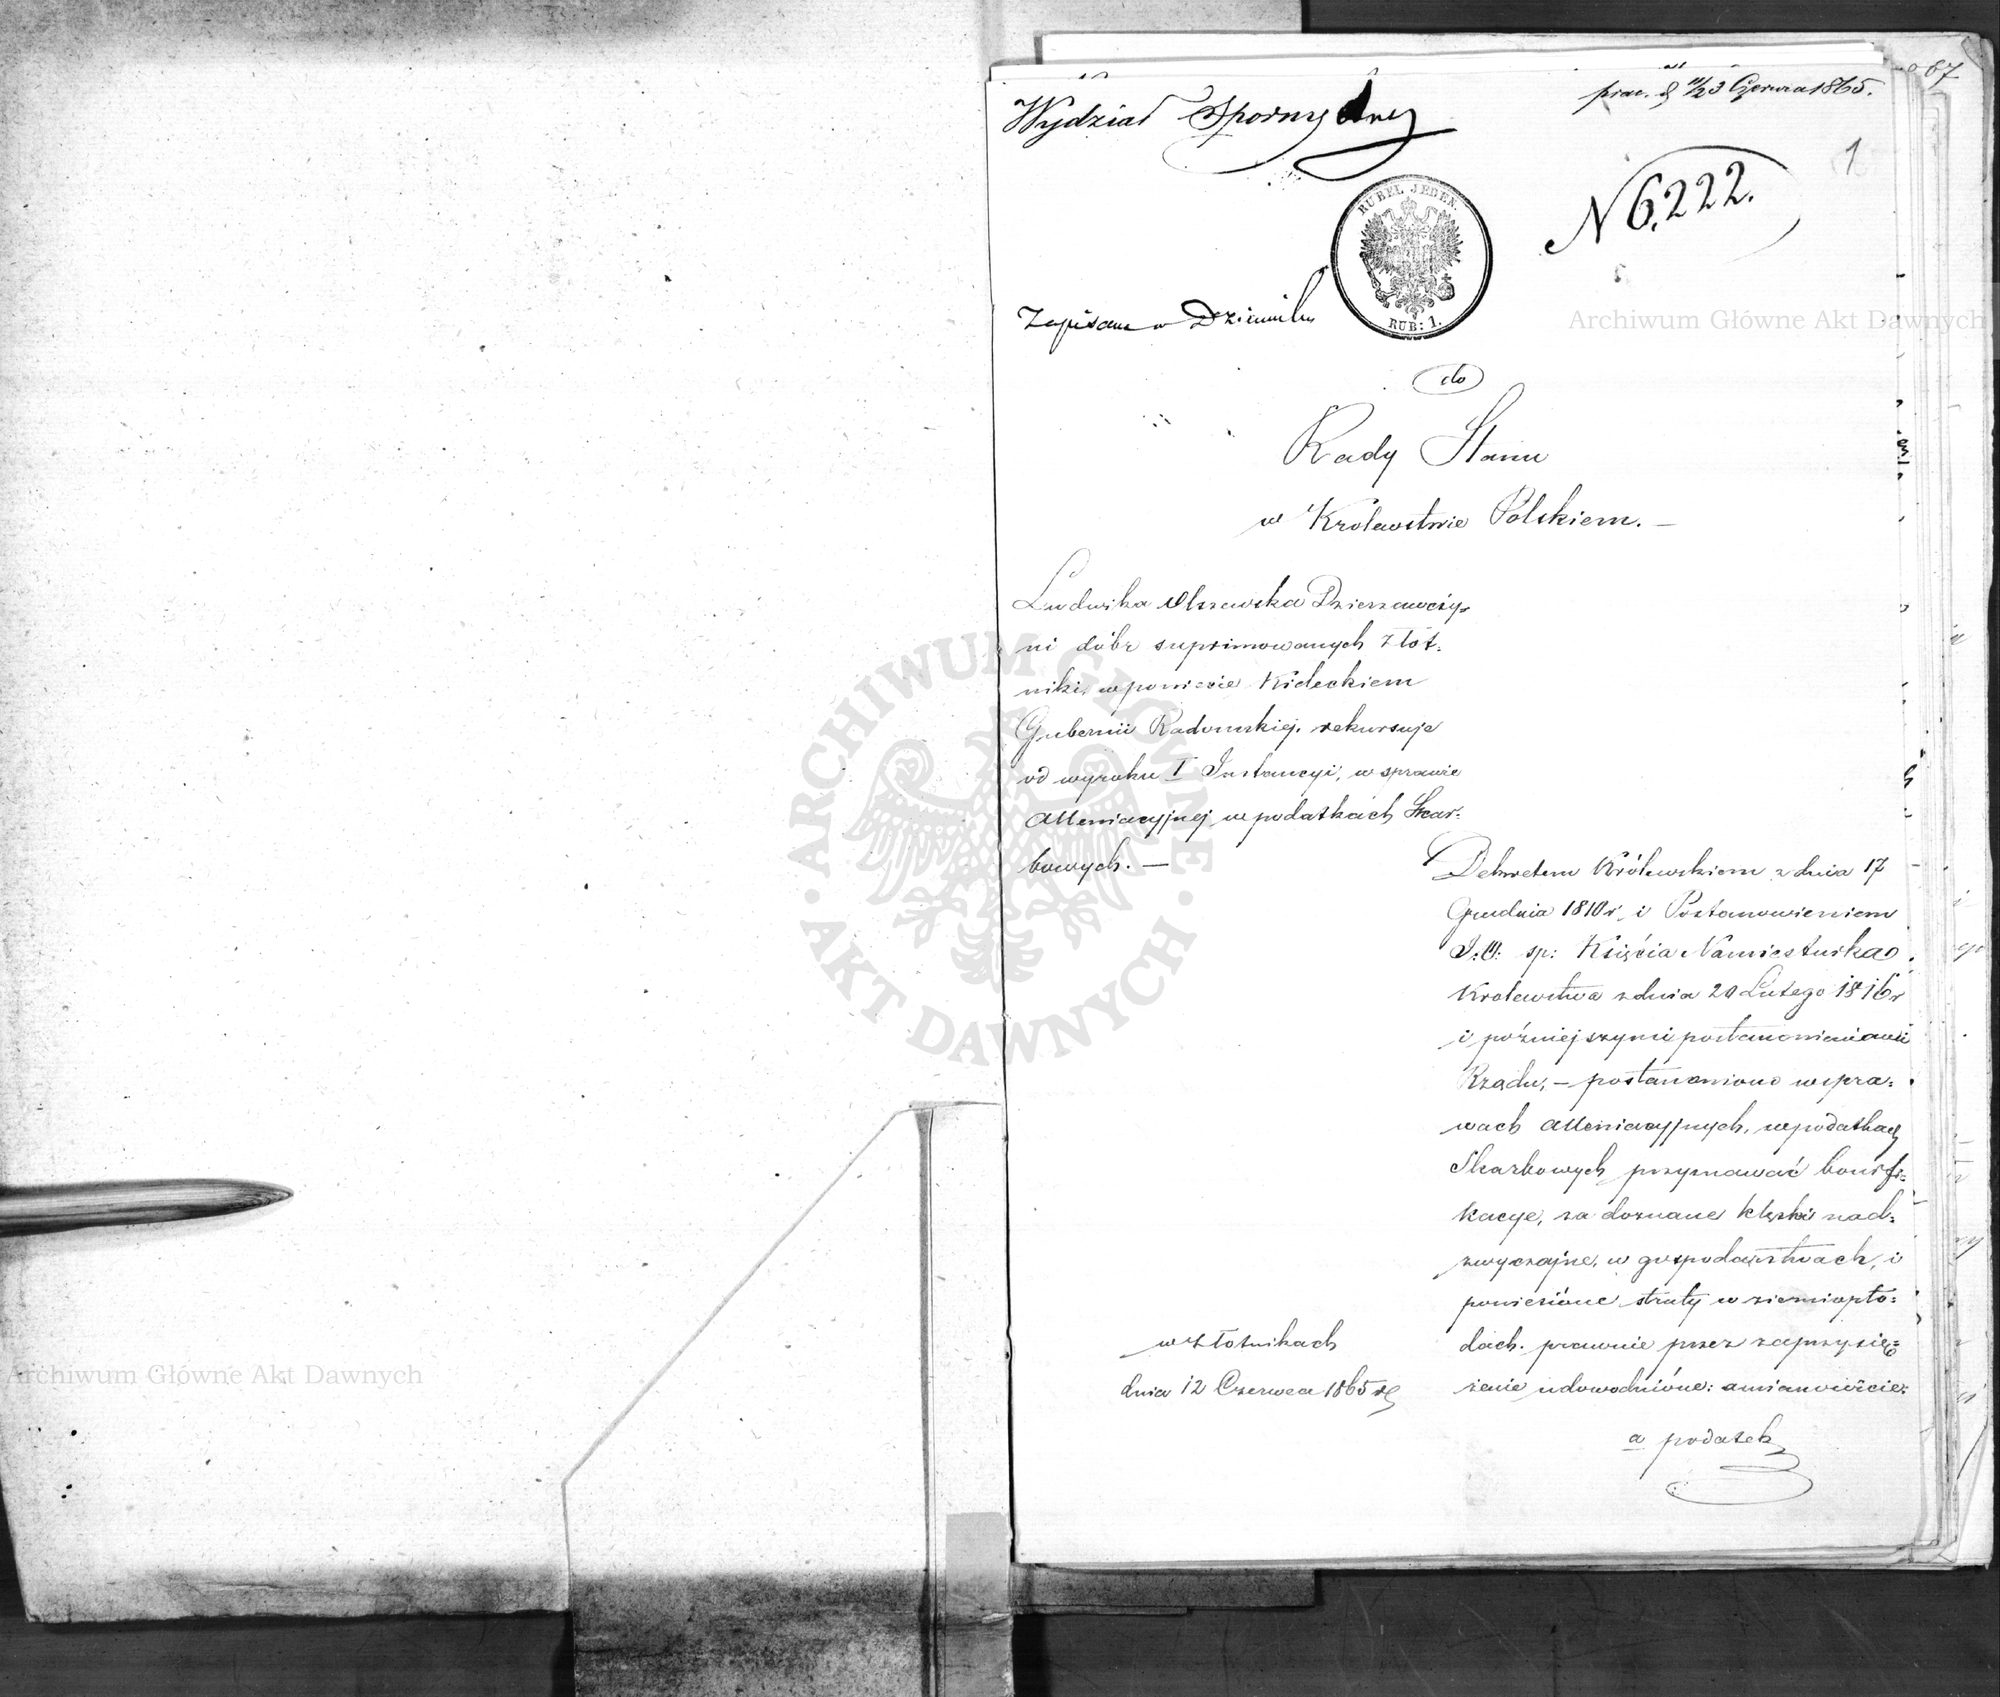 67
praes. d 11/23 Czerwca 1865.
Wydział Sporny
1
N 6,222.
RUBEL JEDEN.
RUB: 1.
Zapisana w Dzienniku
Archiwum Główne Akt Dawnych
do
Rady Stanu
w Królewstwie Polskiem. —
Ludwika Olszewska Dzierzawczy-
ni dóbr suprimowanych Złot-
niki, w powiecie Kieleckiem
Gubernii Radomskiej, rekursuje
od wyroku I Instancyi, w sprawie
Alleniacyjnej w podatkach Skar-
bowych. —
ARCHIWUM GŁÓWNE · AKT DAWNYCH ·
Dekretem Królewskiem z dnia 17
Grudnia 1810 r, i Postanowieniem
J:O: sp: Księcia Namiestnika
Krolewstwa z dnia 20 Lutego 1816 r
i późniejszymi postanowieniami
Rządu, — postanowiono w spra-
wach Alleniacyjnych, w podatkach
Skarbowych przyznawać bonifi-
kacye, za doznane klęski nad-
zwyczajne, w gospodarstwach, i
poniesióne straty w ziemiopło-
dach. prawnie przez zaprzysię-
żenie udowodnióne: a mianowicie:
w Złotnikach
dnia 12 Czerwca 1865 r
a podatek
Archiwum Główne Akt Dawnych